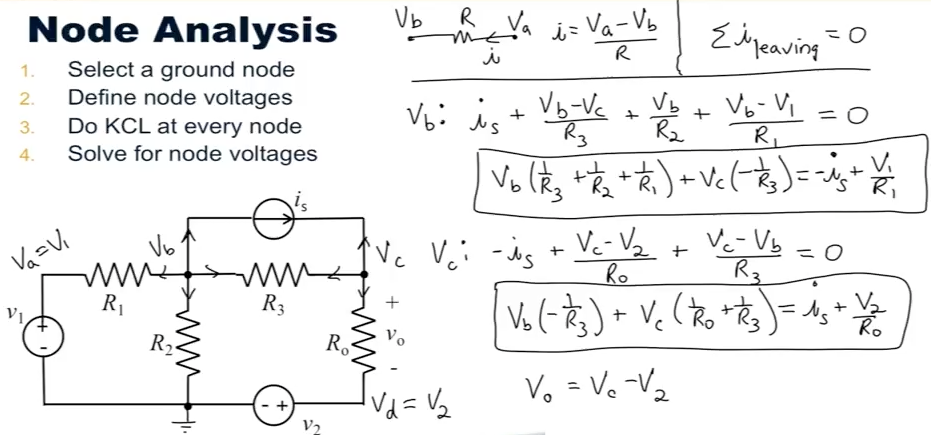 Node Analysis
1. Select a ground node
2. Define node voltages
3. Do KCL at every node
4. Solve for node voltages
V_b R V_a i i = (V_a - V_b)/R Σ i_leaving = 0
V_b: i_s + (V_b - V_c)/R_3 + V_b/R_2 + (V_b - V_1)/R_1 = 0
V_b (1/R_3 + 1/R_2 + 1/R_1) + V_c (-1/R_3) = -i_s + V_1/R_1
V_c: -i_s + (V_c - V_2)/R_o + (V_c - V_b)/R_3 = 0
V_b (-1/R_3) + V_c (1/R_o + 1/R_3) = i_s + V_2/R_o
V_o = V_c - V_2
i_s
V_a = V_1 V_b V_c
R_1 R_3 +
v_1 + - R_2 R_o v_o
-
- + V_d = V_2
v_2